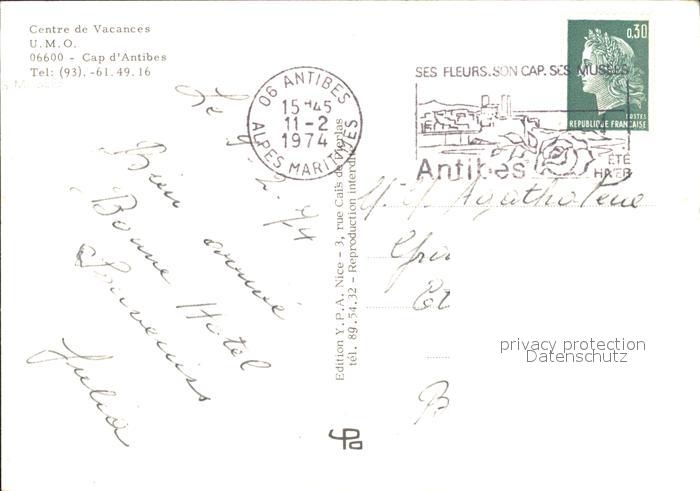 Centre de Vacances
U.M.O.
06600 - Cap d'Antibes
Tel: (93).-61.49.16
06 ANTIBES
15 H45
11-2
1974
ALPES MARITIMES
SES FLEURS.SON CAP.SES MUSÉES
Antibes
ÉTÉ
HIVER
0,30
POSTES
REPUBLIQUE FRANÇAISE
Le 9.2.74
Bien arrivée
Bonne Hôtel
Souvenirs
Julia
Edition Y.P.A, Nice - 3, rue Caïs de Pierlas
tél. 89.54.32 - Reproduction interdite
privacy protection
Datenschutz